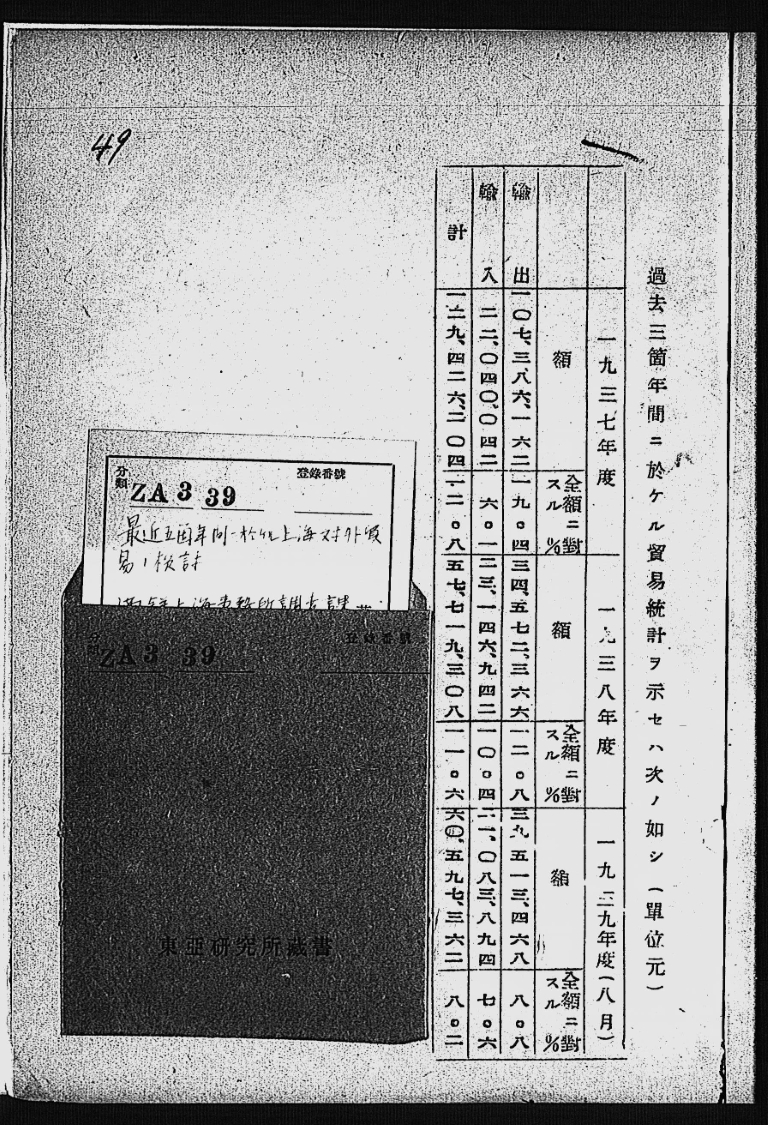 49
過去三箇年間ニ於ケル貿易統計ヲ示セハ次ノ如シ(單位元)
一九三七年度
一九三八年度
一九三九年度(八月)
額
全額ニ對スル%
額
全額ニ對スル%
額
全額ニ對スル%
輸出
一〇七、三八六、一六二
一九。四
三四、五七二、三六六
一二。八
三九、五一三、四六八
八。八
輸入
二二、〇四〇、〇四二
六。一
二三、一四六、九四二
一〇。四
二一、〇八三、八九四
七。六
計
一二九、四二六、二〇四
一二。八
五七、七一九、三〇八
一一。六
六〇、五九七、三六二
八。二
分類 ZA3 39
登錄番號
最近五箇年間ニ於ケル上海対外貿
易ノ検討
満鉄上海事務所調査課
分類 ZA3 39
登錄番號
東亞研究所藏書